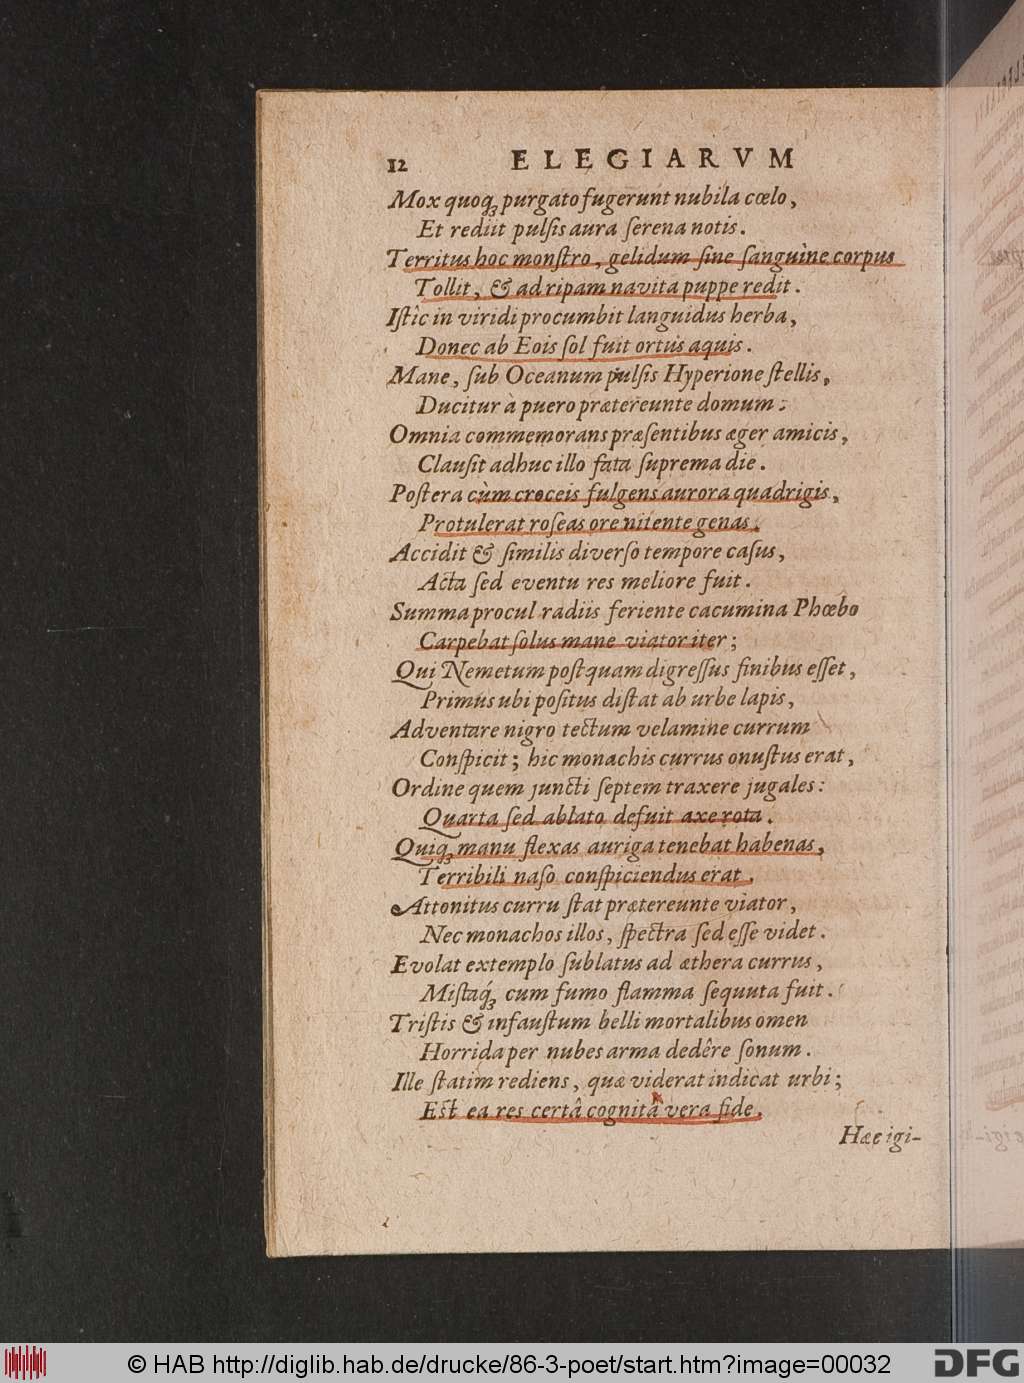 12 ELEGIARVM
Mox quoqꝫ purgato fugerunt nubila cœlo,
Et rediit pulſis aura ſerena notis.
Territus hoc monſtro, gelidum ſine ſanguine corpus
Tollit, & ad ripam navita puppe redit.
Iſtîc in viridi procumbit languidus herba,
Donec ab Eois ſol fuit ortus aquis.
Mane, ſub Oceanum pulſis Hyperione ſtellis,
Ducitur à puero prætereunte domum:
Omnia commemorans præſentibus æger amicis,
Clauſit adhuc illo fata ſuprema die.
Poſtera cùm croceis fulgens aurora quadrigis,
Protulerat roſeas ore nitente genas.
Accidit & ſimilis diverſo tempore caſus,
Acta ſed eventu res meliore fuit.
Summa procul radiis feriente cacumina Phœbo
Carpebat ſolus mane viator iter;
Qui Nemetum poſtquam digreſſus finibus eſſet,
Primus ubi poſitus diſtat ab urbe lapis,
Adventare nigro tectum velamine currum
Conſpicit; hic monachis currus onuſtus erat,
Ordine quem juncti ſeptem traxere jugales:
Quarta ſed ablato defuit axe rota.
Quiqꝫ manu flexas auriga tenebat habenas,
Terribili naſo conſpiciendus erat.
Attonitus curru ſtat prætereunte viator,
Nec monachos illos, ſpectra ſed eſſe videt.
Evolat extemplo ſublatus ad æthera currus,
Miſtaqꝫ́ cum fumo flamma ſequuta fuit.
Triſtis & infauſtum belli mortalibus omen
Horrida per nubes arma dedêre ſonum.
Ille ſtatim rediens, quæ viderat indicat urbi;
Eſt ea res certâ cognita vera fide.
Hæc igi-
© HAB http://diglib.hab.de/drucke/86-3-poet/start.htm?image=00032
DFG